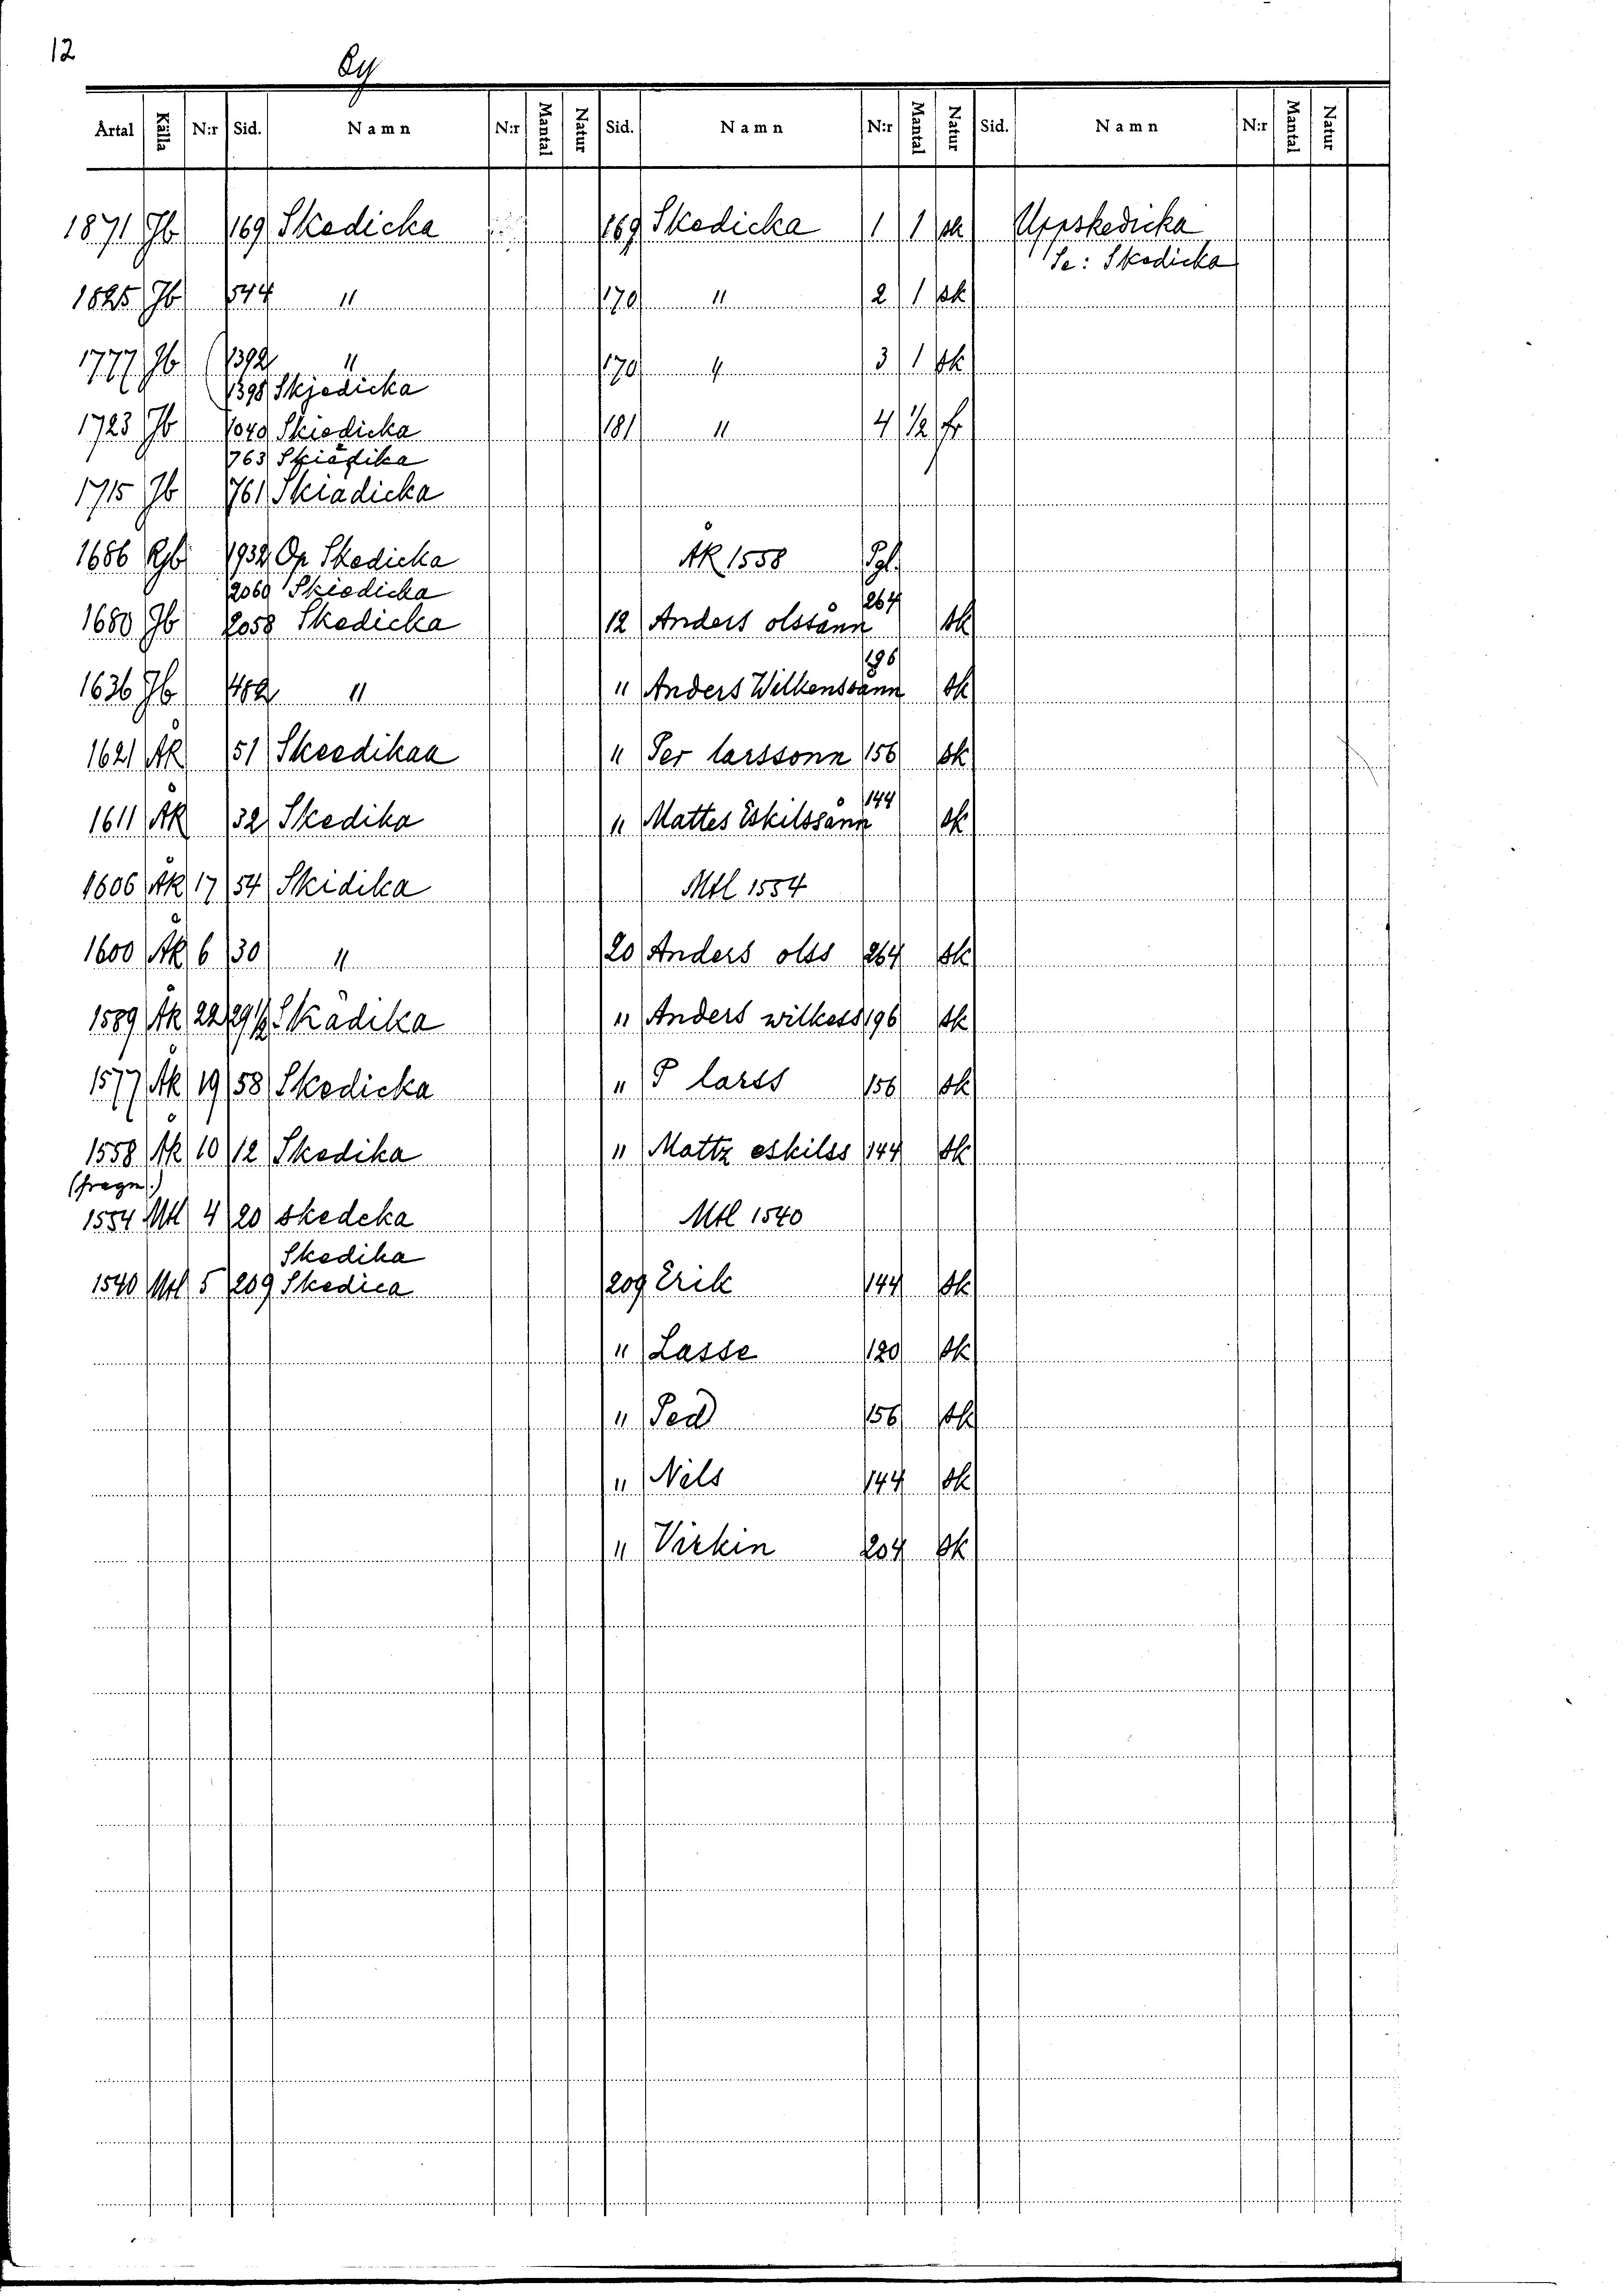 12
By
Årtal Källa N:r Sid. Namn N:r Mantal Natur Sid. Namn N:r Mantal Natur Sid. Namn N:r Mantal Natur
1871 Jb 169 Skedicka 169 Skedicka 1 1 sk Uppskedicka
Se: Skedicka
1825 Jb 544 " 170 " 2 1 sk
1777 Jb 1392 " 170 " 3 1 sk
1398 Skjedicka
1723 Jb 1040 Skiedicka 181 " 4 1/2 fr
763 Skiädika
1715 Jb 761 Skiädicka
1686 Rgb 1932 Op Skedicka ÅK 1558 Pgl.
2060 Skiedicka 264
1680 Jb 2058 Skedicka 12 Anders olssånn sk
196
1636 Jb 482 " " Anders Wilkenssånn sk
1621 ÅK 51 Skeedikaa " Per larssonn 156 sk
144
1611 ÅK 32 Skedika " Mattes Eskilssånn sk
1606 ÅK 17 54 Skidika Mtl 1554
1600 ÅK 6 30 " 20 Anders olss 264 sk
1589 ÅK 22 29 1/2 Skädika " Anders wilkess 196 sk
1577 ÅK 19 58 Skedicka " P larss 156 sk
1558 ÅK 10 12 Skedika " Mattz eskilss 144 sk
(fragm.)
1554 Mtl 4 20 skedeka Mtl 1540
Skedika
1540 Mtl 5 209 Skedica 209 Erik 144 sk
" Lasse 120 sk
" Ped 156 sk
" Nils 144 sk
" Virkin 204 sk